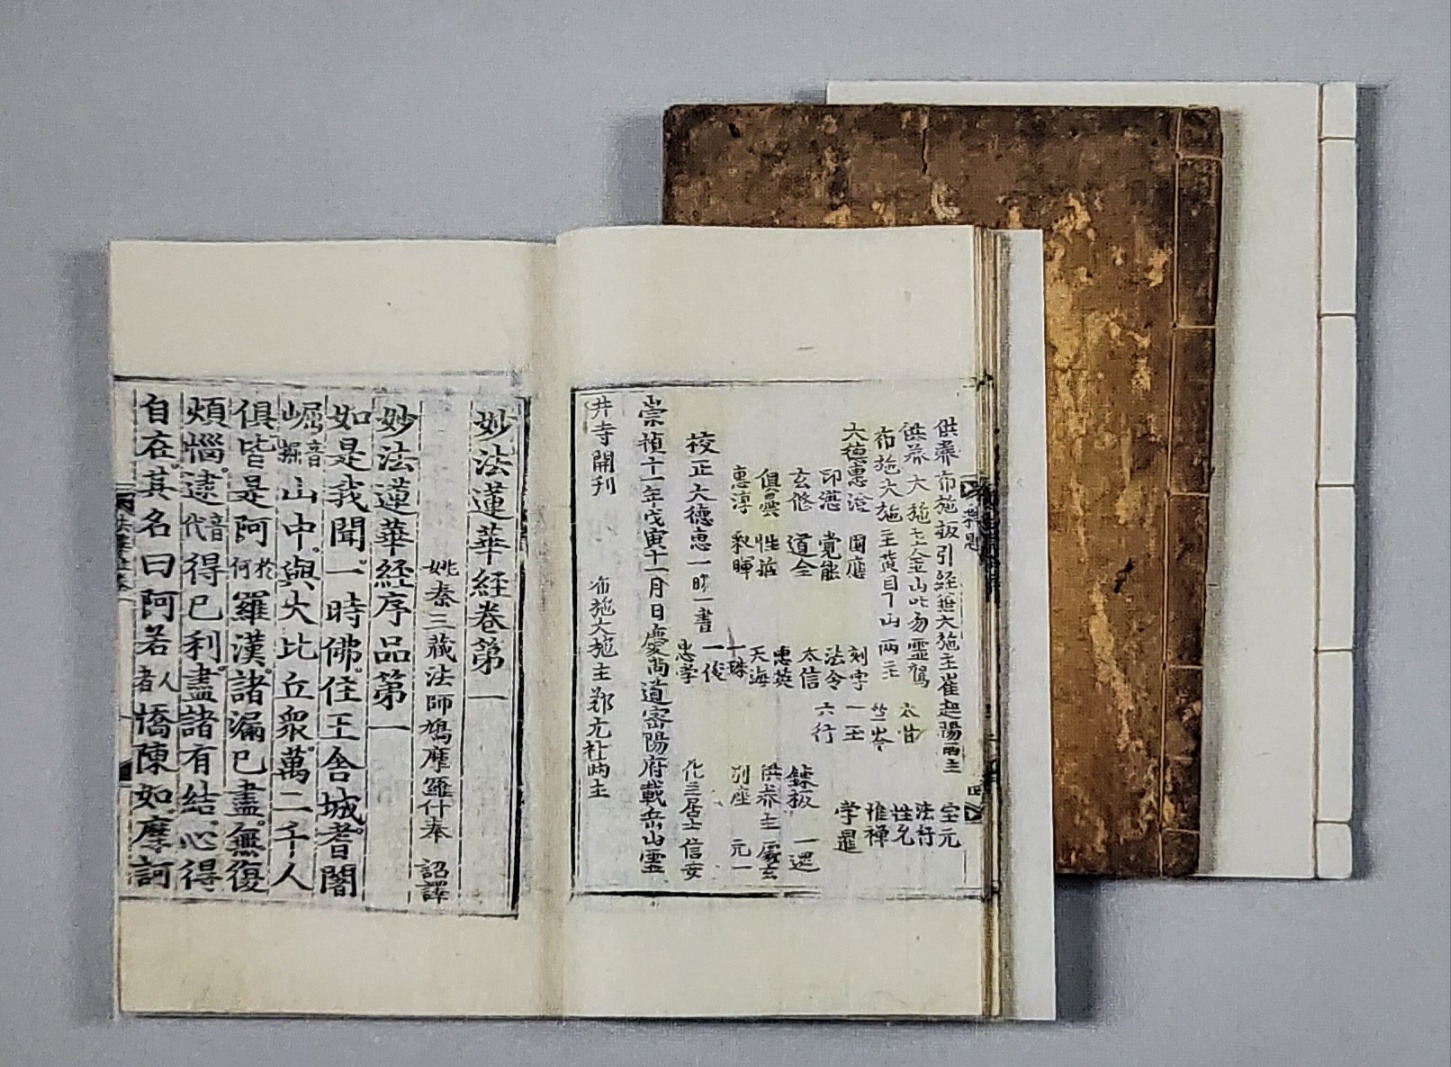 供養布施板引経無大施主崔起陽両主
供養大施主金山比勿靈駕
布施大施主黄目丁山両主
太甘
竺岑
宝元
法行
性允
惟禅
学暹
大德惠澄 国應
印浩 覚能
玄修 道全
俱雲 性䧺
惠淳 釈暉
刻字 一玉
法令 六行
太信
惠英
天海
一珠
一俊
忠学
錬板 一還
供养主 處玄
別座 元一
化主居士信安
校正大德惠一時一書
崇禎十一年戊寅十一月日慶尚道密陽府載岳山霊
井寺開刋 布施大施主鄭允社両主
妙法蓮華経卷第一
姚秦三藏法師鳩摩羅什奉 詔譯
妙法蓮華経序品第一
如是我聞一時佛住王舍城耆闍
崛音掘山中與大比丘衆萬二千人
俱皆是阿於何羅漢諸漏已盡無復
煩惱逮音代得已利盡諸有結心得
自在其名曰阿若人者憍陳如摩訶